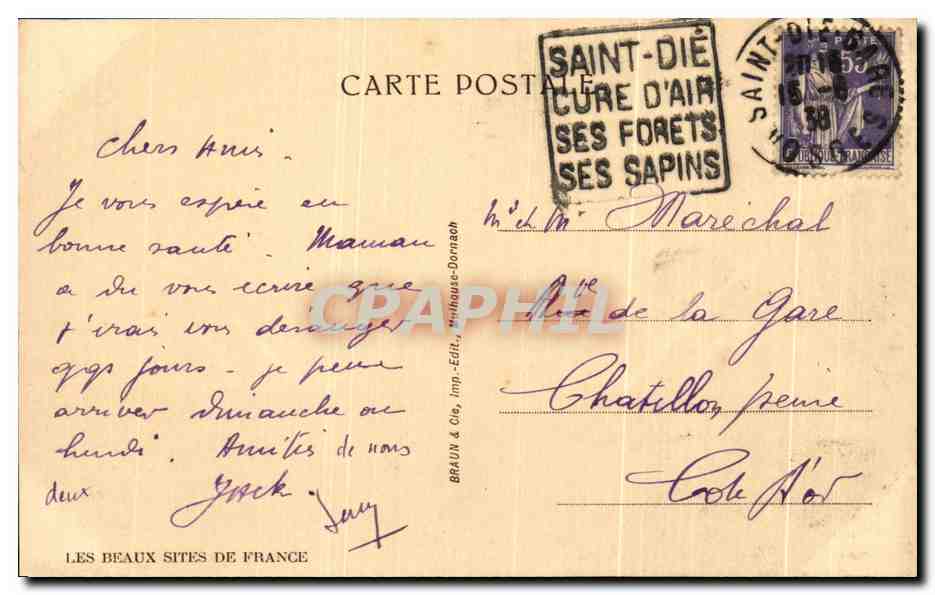 CARTE POSTALE
SAINT-DIÉ
CURE D'AIR
SES FORETS
SES SAPINS
SAINT-DIE GARE
15 -6
38
VOSGES
POSTES
55
Chers Amis -
Je vous espère en
bonne santé. Maman
a du vous écrire que
j'irais vous déranger
qqs jours - je pense
arriver dimanche ou
lundi. Amitiés de nous
deux Jack
BRAUN & Cie, Imp.-Edit., Mulhouse-Dornach
Mr et Me Maréchal
Ave de la Gare
Chatillon s/seine
Cote d'or
LES BEAUX SITES DE FRANCE
CPAPHIL